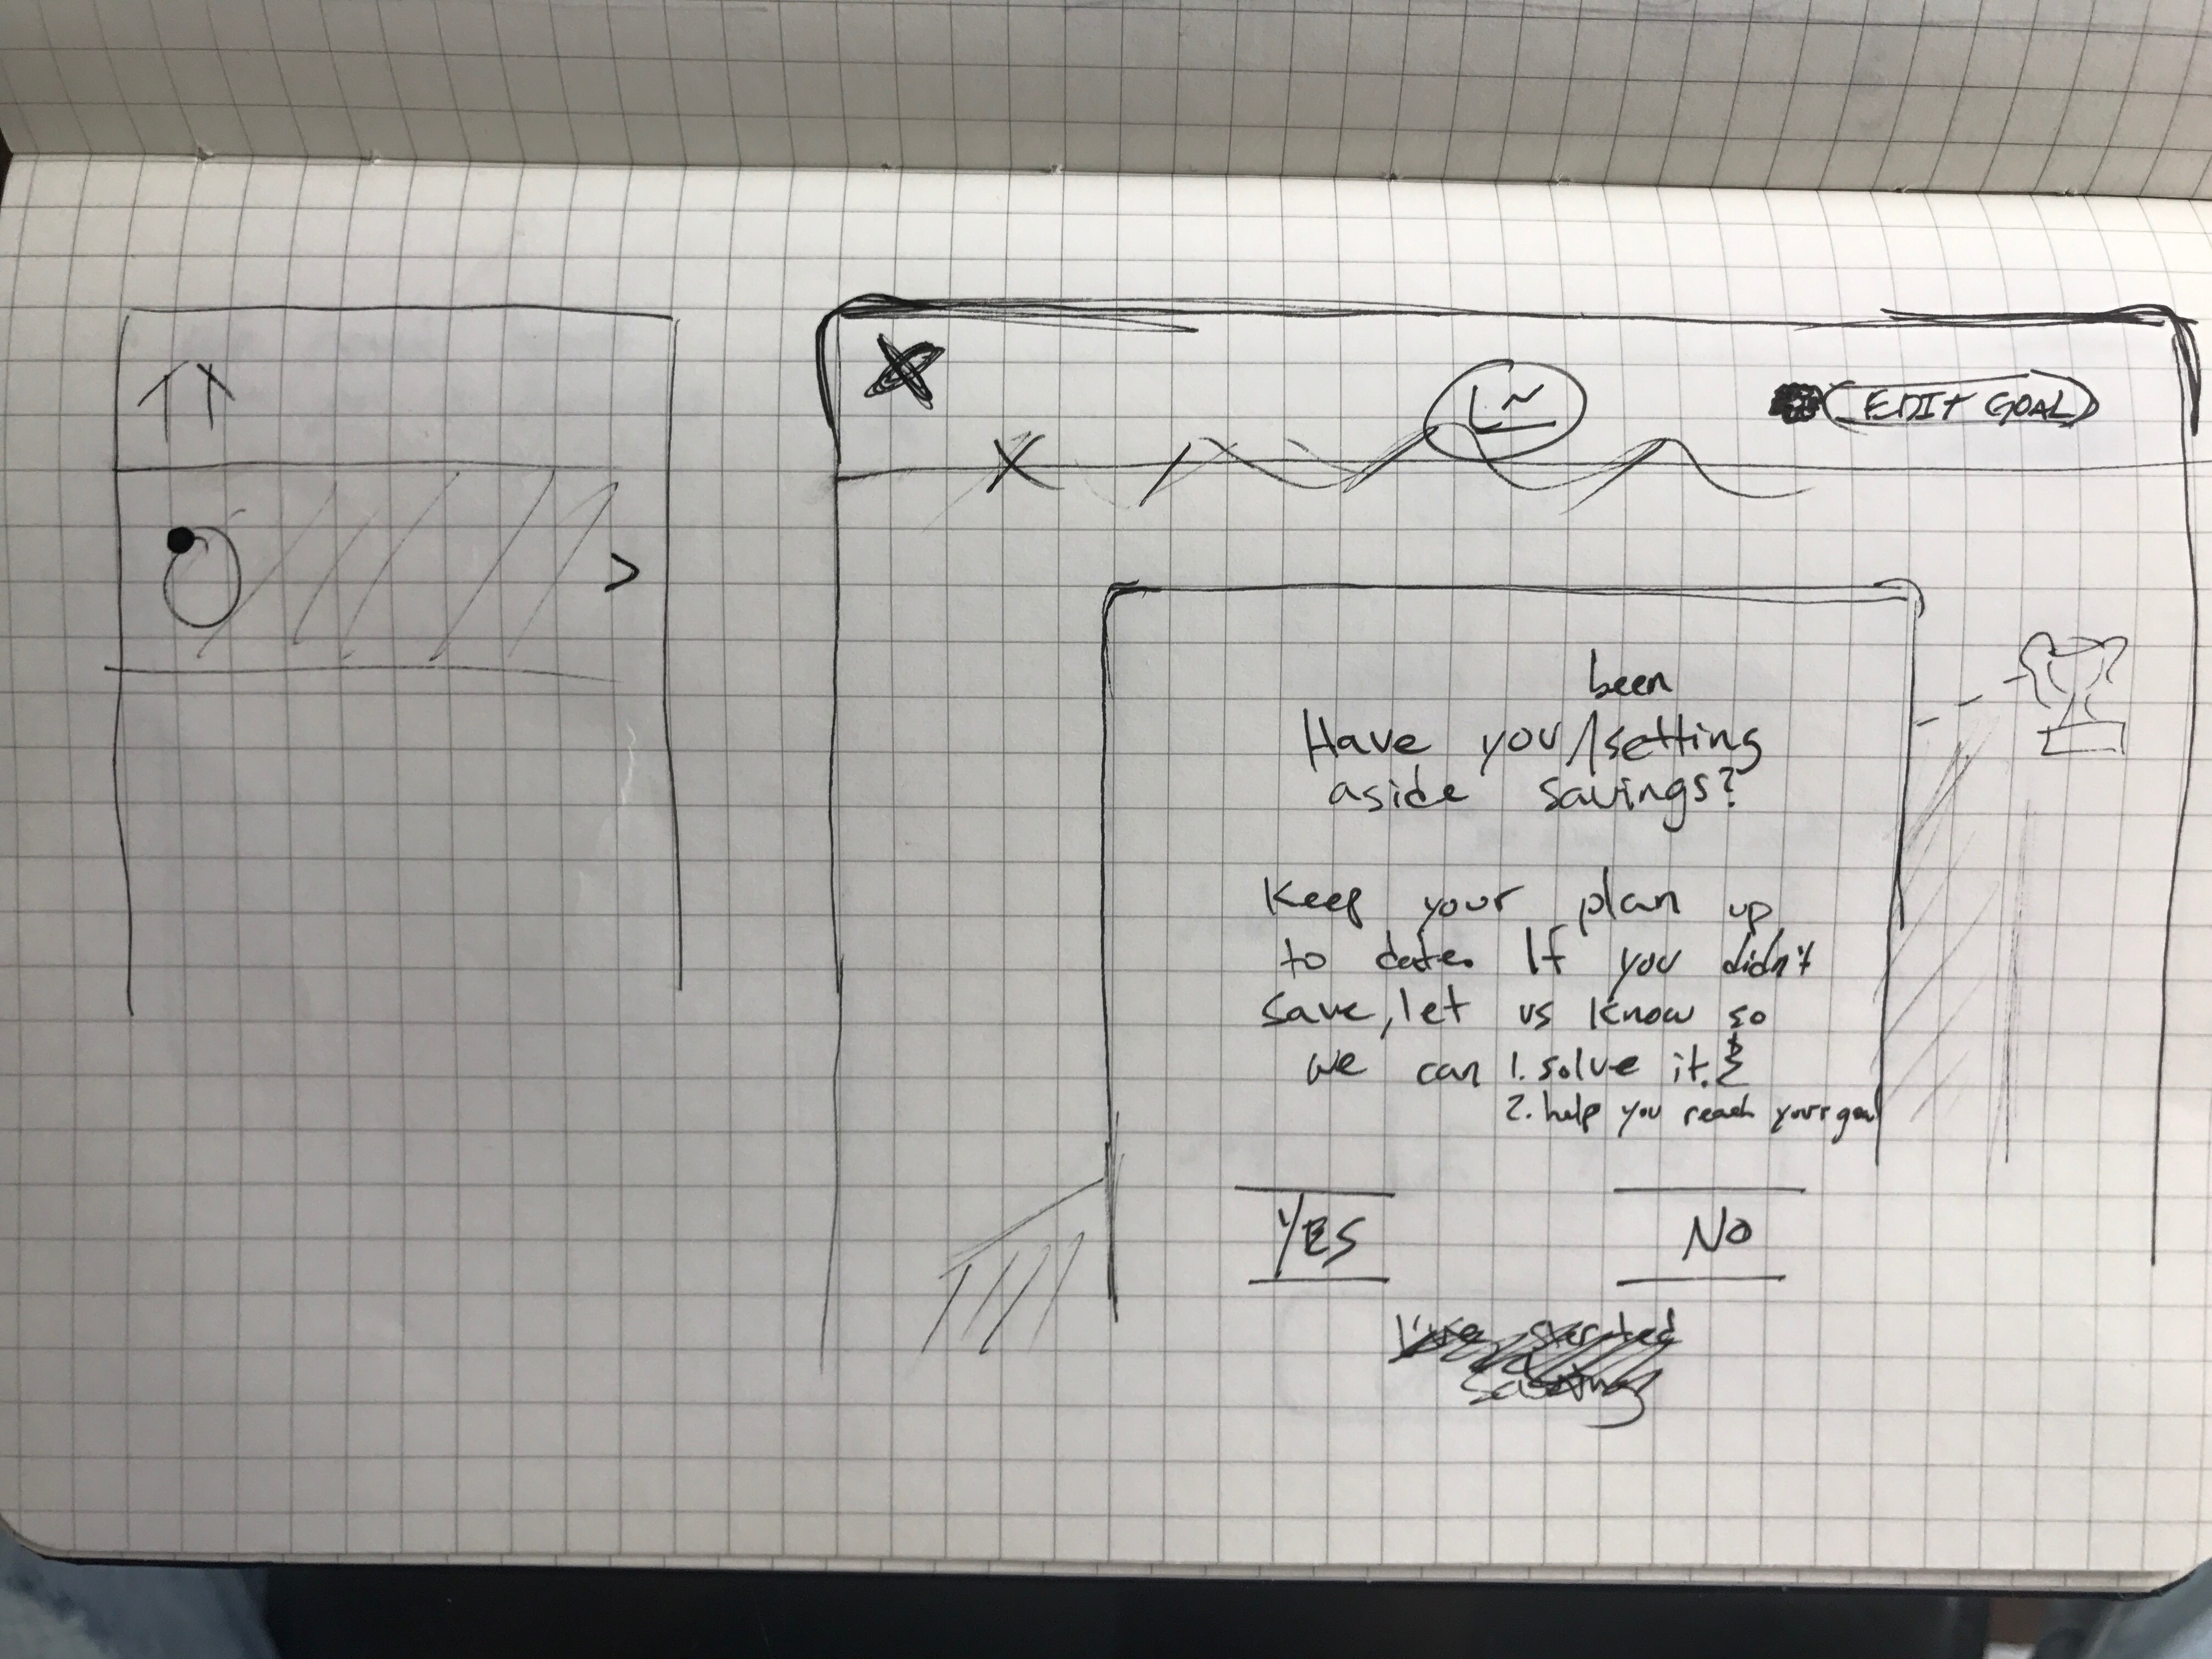 EDIT GOAL
been
Have you/setting
aside savings?
Keep your plan up
to date. If you didn't
save, let us know so
we can 1. solve it. &
2. help you reach your goal
YES
NO
started
saving